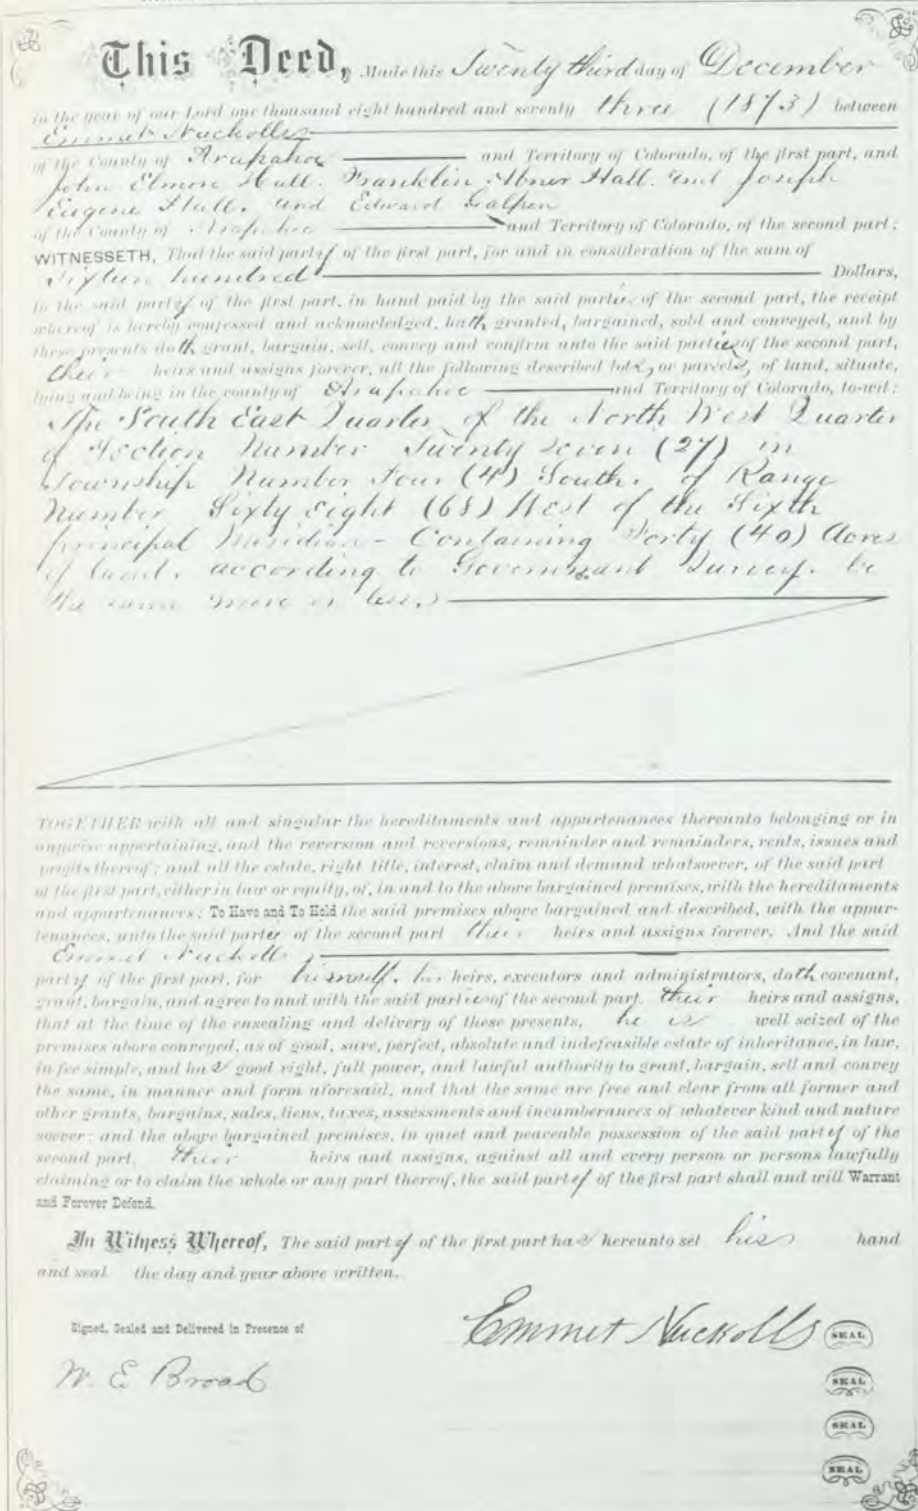 This Deed, Made this Twenty third day of December
in the year of our Lord one thousand eight hundred and seventy three (1873) between
Emmet Nuckolls
of the County of Arapahoe and Territory of Colorado, of the first part, and
John Elmon Hall. Franklin Abner Hall. and Joseph
Eugene Hall. and Edward Galpen
of the County of Arapahoe and Territory of Colorado, of the second part;
WITNESSETH, That the said party of the first part, for and in consideration of the sum of
Sixteen hundred Dollars,
to the said party of the first part, in hand paid by the said parties of the second part, the receipt
whereof is hereby confessed and acknowledged, hath granted, bargained, sold and conveyed, and by
these presents doth grant, bargain, sell, convey and confirm unto the said parties of the second part,
their heirs and assigns forever, all the following described lots, or parcels, of land, situate,
lying and being in the county of Arapahoe and Territory of Colorado, to-wit:
The South East Quarter of the North West Quarter
of Section Number Twenty Seven (27) in
Township Number Four (4) South. of Range
Number Sixty eight (68) West of the Sixth
principal Meridian - Containing Forty (40) Acres
of land. according to Government Survey. be
the same more or less.
TOGETHER with all and singular the hereditaments and appurtenances thereunto belonging or in
anywise appertaining, and the reversion and reversions, remainder and remainders, rents, issues and
profits thereof; and all the estate, right title, interest, claim and demand whatsoever, of the said part
of the first part, either in law or equity, of, in and to the above bargained premises, with the hereditaments
and appurtenances; To Have and To Hold the said premises above bargained and described, with the appur-
tenances, unto the said parties of the second part their heirs and assigns forever. And the said
Emmet Nuckolls
party of the first part, for himself. his heirs, executors and administrators, doth covenant,
grant, bargain, and agree to and with the said parties of the second part, their heirs and assigns,
that at the time of the ensealing and delivery of these presents, he is well seized of the
premises above conveyed, as of good, sure, perfect, absolute and indefeasible estate of inheritance, in law,
in fee simple, and has good right, full power, and lawful authority to grant, bargain, sell and convey
the same, in manner and form aforesaid, and that the same are free and clear from all former and
other grants, bargains, sales, liens, taxes, assessments and incumberances of whatever kind and nature
soever: and the above bargained premises, in quiet and peaceable possession of the said party of the
second part, their heirs and assigns, against all and every person or persons lawfully
claiming or to claim the whole or any part thereof, the said party of the first part shall and will Warrant
and Forever Defend.
In Witness Whereof, The said party of the first part has hereunto set his hand
and seal the day and year above written.
Signed, Sealed and Delivered in Presence of
Emmet Nuckolls SEAL
W. E Broad SEAL
SEAL
SEAL